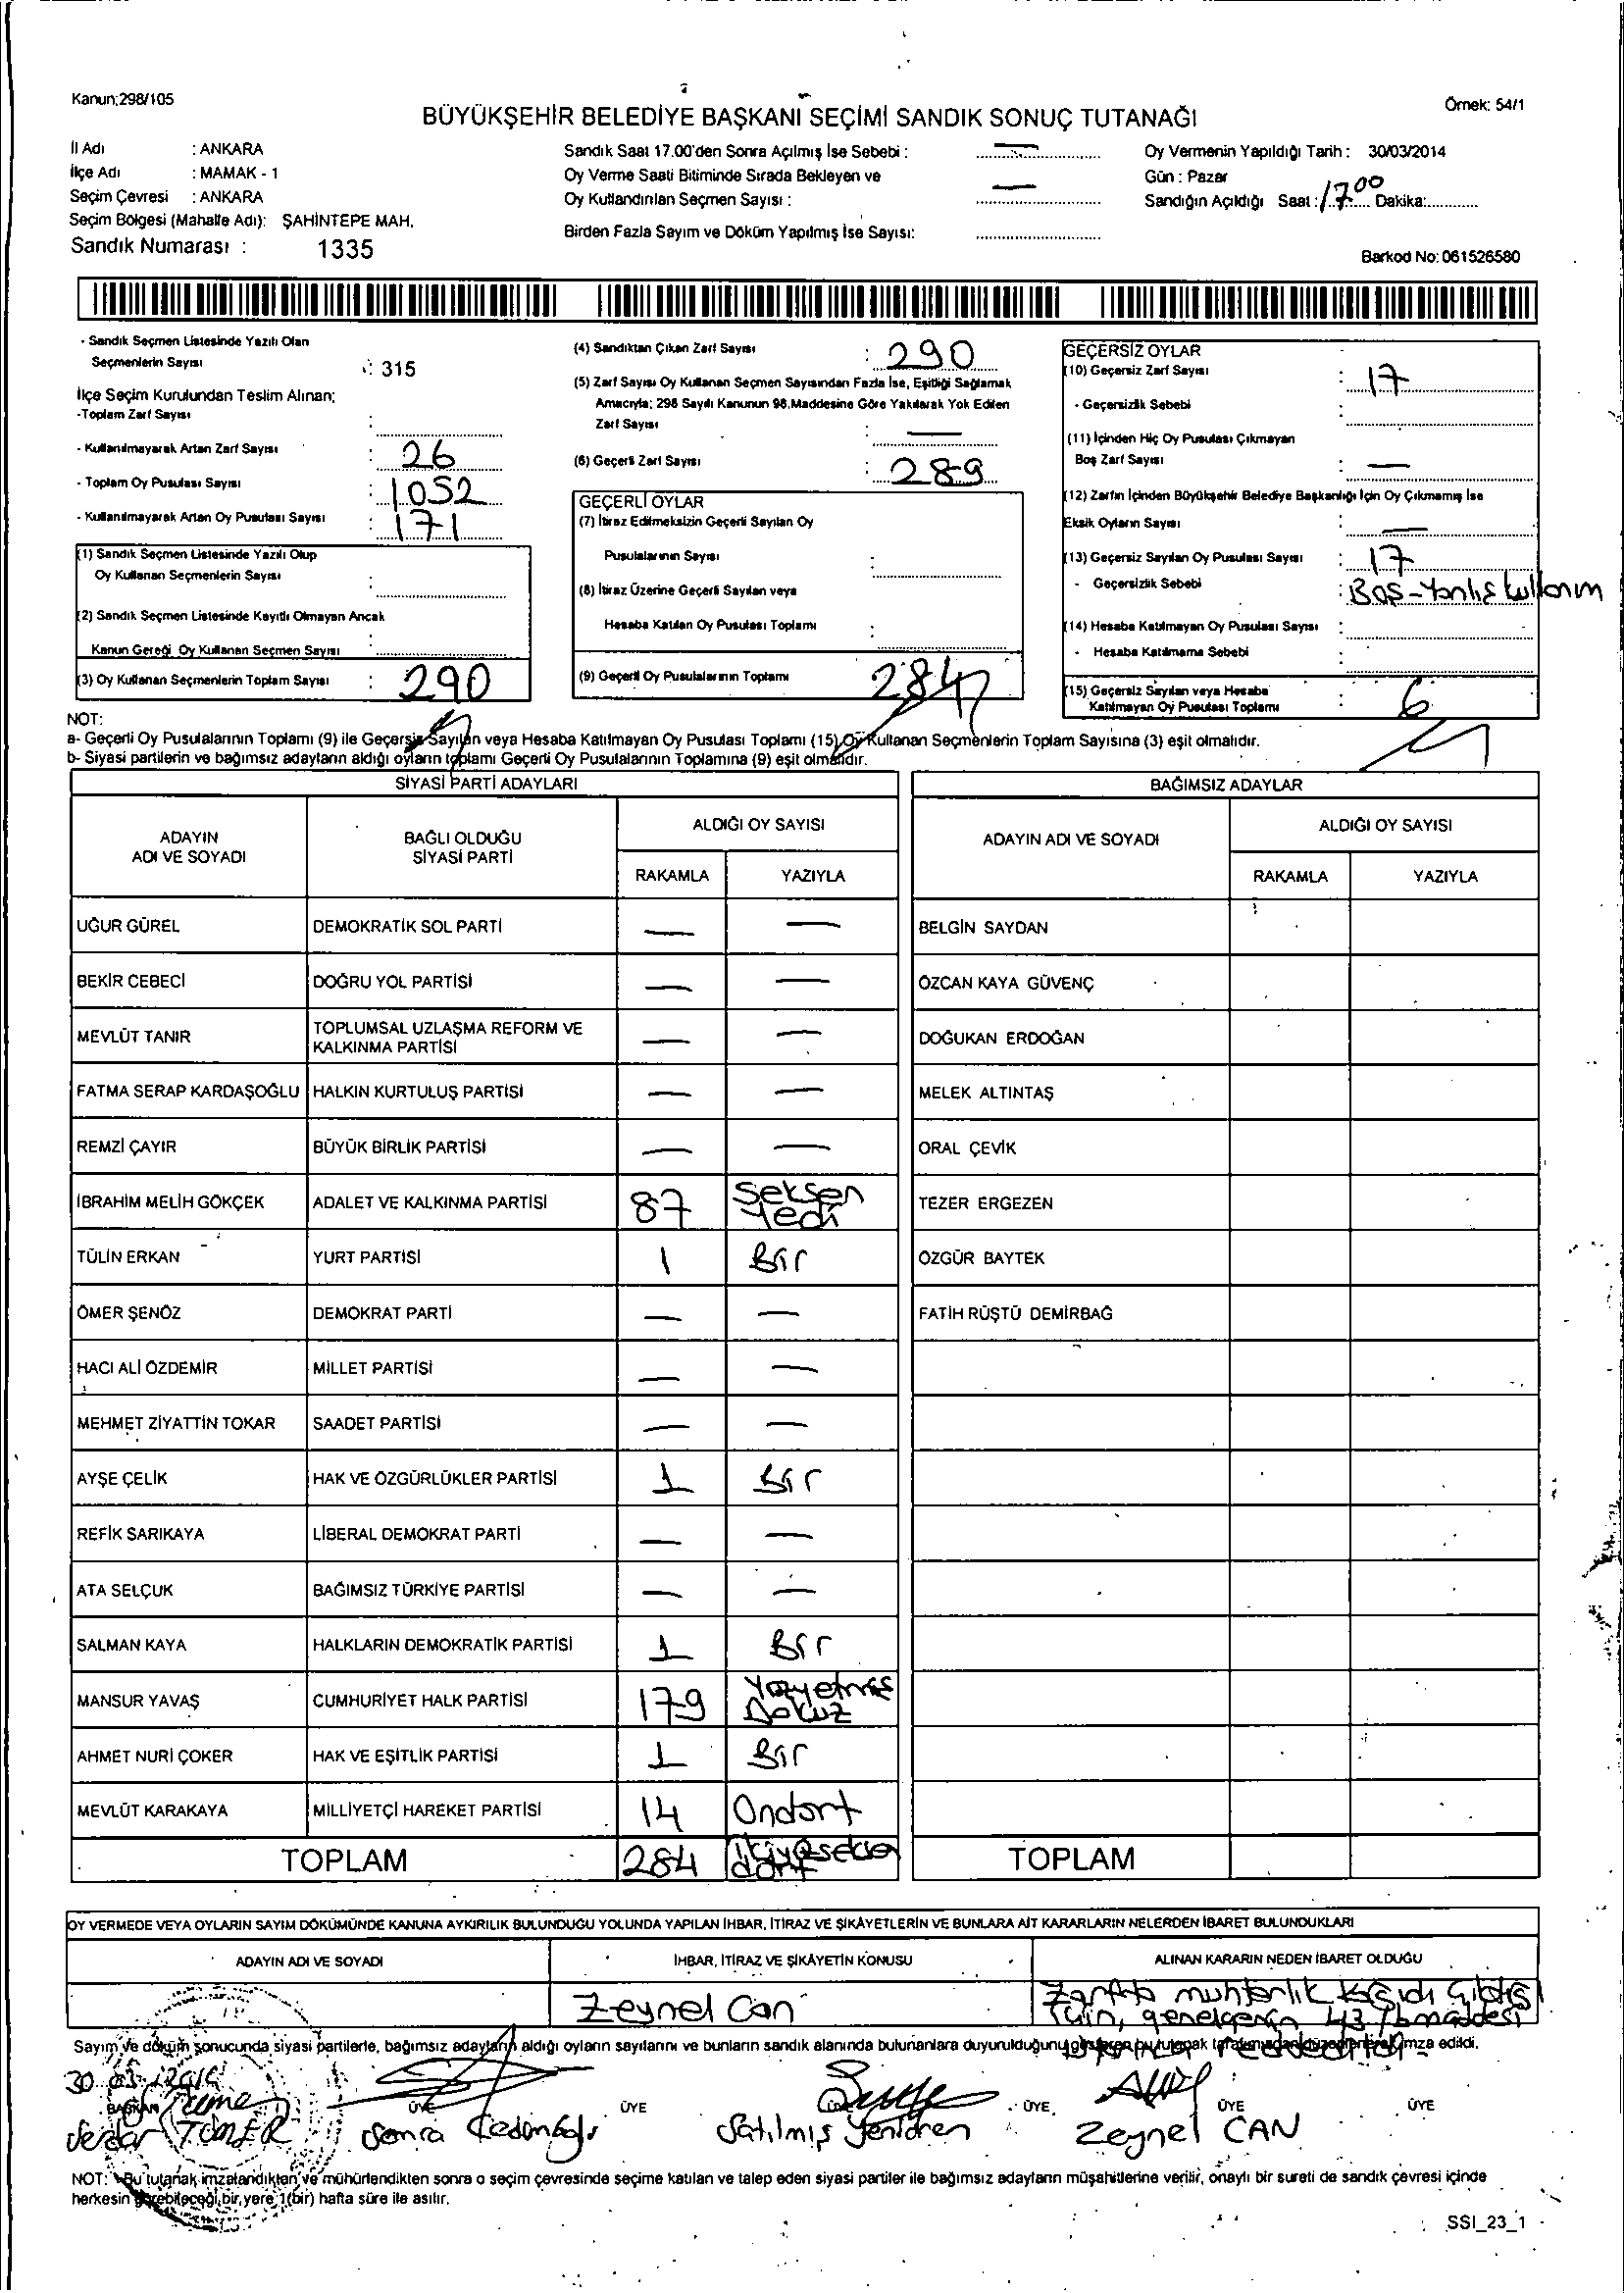 Kanun:298/105
Örnek: 54/1
BÜYÜKŞEHİR BELEDİYE BAŞKANI SEÇİMİ SANDIK SONUÇ TUTANAĞI
İl Adı : ANKARA
İlçe Adı : MAMAK - 1
Seçim Çevresi : ANKARA
Seçim Bölgesi (Mahalle Adı): ŞAHİNTEPE MAH.
Sandık Numarası : 1335
Sandık Saat 17.00'den Sonra Açılmış İse Sebebi : —
Oy Verme Saati Bitiminde Sırada Bekleyen ve
Oy Kullandırılan Seçmen Sayısı : —
Birden Fazla Sayım ve Döküm Yapılmış İse Sayısı:
Oy Vermenin Yapıldığı Tarih : 30/03/2014
Gün : Pazar
Sandığın Açıldığı Saat : 17 00 Dakika:
Barkod No: 061526580
- Sandık Seçmen Listesinde Yazılı Olan
Seçmenlerin Sayısı : 315
İlçe Seçim Kurulundan Teslim Alınan;
-Toplam Zarf Sayısı :
- Kullanılmayarak Artan Zarf Sayısı : 26
- Toplam Oy Pusulası Sayısı : 1052
- Kullanılmayarak Artan Oy Pusulası Sayısı : 171
(1) Sandık Seçmen Listesinde Yazılı Olup
Oy Kullanan Seçmenlerin Sayısı :
(2) Sandık Seçmen Listesinde Kayıtlı Olmayan Ancak
Kanun Gereği Oy Kullanan Seçmen Sayısı :
(3) Oy Kullanan Seçmenlerin Toplam Sayısı : 290
(4) Sandıktan Çıkan Zarf Sayısı : 290
(5) Zarf Sayısı Oy Kullanan Seçmen Sayısından Fazla İse, Eşitliği Sağlamak
Amacıyla; 298 Sayılı Kanunun 98.Maddesine Göre Yakılarak Yok Edilen
Zarf Sayısı : —
(6) Geçerli Zarf Sayısı : 289
GEÇERLİ OYLAR
(7) İtiraz Edilmeksizin Geçerli Sayılan Oy
Pusulalarının Sayısı :
(8) İtiraz Üzerine Geçerli Sayılan veya
Hesaba Katılan Oy Pusulası Toplamı :
(9) Geçerli Oy Pusulalarının Toplamı 284
GEÇERSİZ OYLAR
(10) Geçersiz Zarf Sayısı : 17
- Geçersizlik Sebebi :
(11) İçinden Hiç Oy Pusulası Çıkmayan
Boş Zarf Sayısı : —
(12) Zarfın İçinden Büyükşehir Belediye Başkanlığı İçin Oy Çıkmamış İse
Eksik Oyların Sayısı : —
(13) Geçersiz Sayılan Oy Pusulası Sayısı : 17
- Geçersizlik Sebebi : Boş - Yanlış kullanım
(14) Hesaba Katılmayan Oy Pusulası Sayısı :
- Hesaba Katılmama Sebebi :
(15) Geçersiz Sayılan veya Hesaba
Katılmayan Oy Pusulası Toplamı : 6
NOT:
a- Geçerli Oy Pusulalarının Toplamı (9) ile Geçersiz Sayılan veya Hesaba Katılmayan Oy Pusulası Toplamı (15) Oy Kullanan Seçmenlerin Toplam Sayısına (3) eşit olmalıdır.
b- Siyasi partilerin ve bağımsız adayların aldığı oyların toplamı Geçerli Oy Pusulalarının Toplamına (9) eşit olmalıdır.
SİYASİ PARTİ ADAYLARI
ADAYIN ADI VE SOYADI BAĞLI OLDUĞU SİYASİ PARTİ ALDIĞI OY SAYISI RAKAMLA YAZIYLA
UĞUR GÜREL DEMOKRATİK SOL PARTİ — —
BEKİR CEBECİ DOĞRU YOL PARTİSİ — —
MEVLÜT TANIR TOPLUMSAL UZLAŞMA REFORM VE KALKINMA PARTİSİ — —
FATMA SERAP KARDAŞOĞLU HALKIN KURTULUŞ PARTİSİ — —
REMZİ ÇAYIR BÜYÜK BİRLİK PARTİSİ — —
İBRAHİM MELİH GÖKÇEK ADALET VE KALKINMA PARTİSİ 87 Seksen Yedi
TÜLİN ERKAN YURT PARTİSİ 1 Bir
ÖMER ŞENÖZ DEMOKRAT PARTİ — —
HACI ALİ ÖZDEMİR MİLLET PARTİSİ — —
MEHMET ZİYATTİN TOKAR SAADET PARTİSİ — —
AYŞE ÇELİK HAK VE ÖZGÜRLÜKLER PARTİSİ 1 Bir
REFİK SARIKAYA LİBERAL DEMOKRAT PARTİ — —
ATA SELÇUK BAĞIMSIZ TÜRKİYE PARTİSİ — —
SALMAN KAYA HALKLARIN DEMOKRATİK PARTİSİ 1 Bir
MANSUR YAVAŞ CUMHURİYET HALK PARTİSİ 179 Yüzyetmiş Dokuz
AHMET NURİ ÇOKER HAK VE EŞİTLİK PARTİSİ 1 Bir
MEVLÜT KARAKAYA MİLLİYETÇİ HAREKET PARTİSİ 14 Ondört
TOPLAM 284
BAĞIMSIZ ADAYLAR
ADAYIN ADI VE SOYADI ALDIĞI OY SAYISI RAKAMLA YAZIYLA
BELGİN SAYDAN
ÖZCAN KAYA GÜVENÇ
DOĞUKAN ERDOĞAN
MELEK ALTINTAŞ
ORAL ÇEVİK
TEZER ERGEZEN
ÖZGÜR BAYTEK
FATİH RÜŞTÜ DEMİRBAĞ
TOPLAM
OY VERMEDE VEYA OYLARIN SAYIM DÖKÜMÜNDE KANUNA AYKIRILIK BULUNDUĞU YOLUNDA YAPILAN İHBAR, İTİRAZ VE ŞİKÂYETLERİN VE BUNLARA AİT KARARLARIN NELERDEN İBARET BULUNDUKLARI
ADAYIN ADI VE SOYADI İHBAR, İTİRAZ VE ŞİKÂYETİN KONUSU ALINAN KARARIN NEDEN İBARET OLDUĞU
Zeynel Can
Zarfta muhtarlık kağıdı çıktığı
için, genelgenin 43/b maddesi
Sayım ve döküm sonucunda siyasi partilerle, bağımsız adayların aldığı oyların sayılarını ve bunların sandık alanında bulunanlara duyurulduğunu gösteren bu tutanak tarafımızdan düzenlenerek imza edildi.
30.03.2014
BAŞKAN ÜYE ÜYE ÜYE ÜYE ÜYE ÜYE
Serdar TÜMER Satılmış Zeynel CAN
NOT: Bu tutanak imzalandıktan ve mühürlendikten sonra o seçim çevresinde seçime katılan ve talep eden siyasi partiler ile bağımsız adayların müşahitlerine verilir, onaylı bir sureti de sandık çevresi içinde
herkesin görebileceği bir yere 1(bir) hafta süre ile asılır.
SSI_23_1